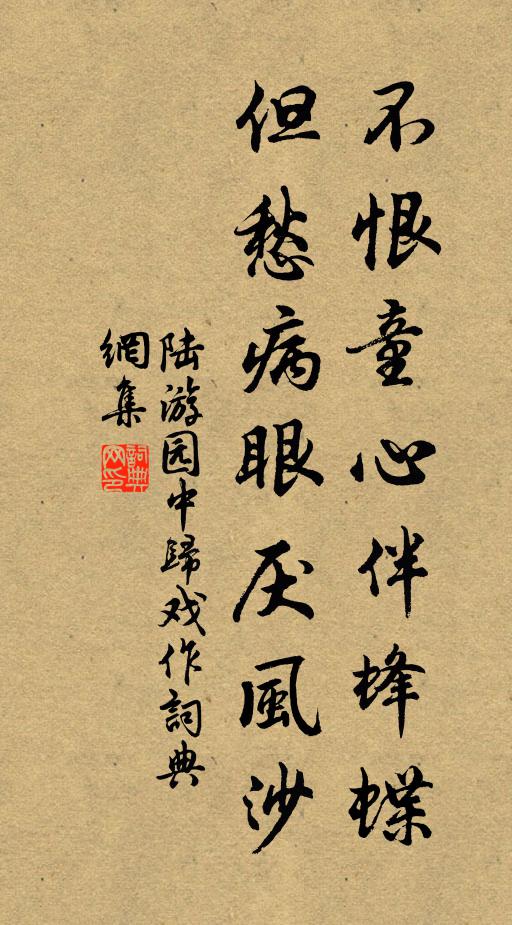 不恨童心伴蜂蝶
但愁病眼厌風沙
陆游园中歸戏作詞典
網集
詞典网印